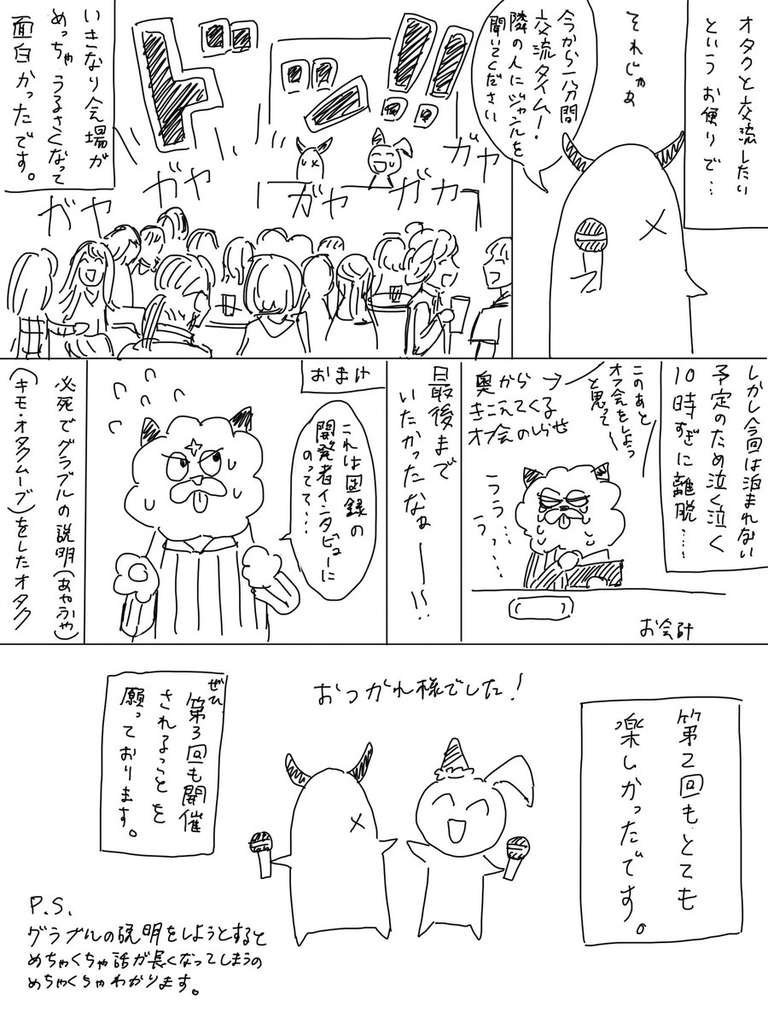 オタクと交流したい
というお便りで…
それじゃあ
今から一分間
交流タイム！
隣の人にジャンルを
聞いてください
ド
!!
ガヤ
ガヤ
ガヤ
ガヤ
ガヤ
いきなり会場が
めっちゃうるさくなって
面白かったです。
しかし今回は泊まれない
予定のため泣く泣く
10時すぎに離脱…
このあと
オフ会をしよっ
と思って〜
奥から→
きこえてくる
オフ会のしらせ
うう…
うっ…
お会計
最後まで
いたかったなぁーー!!
おまけ
これは図録の
開発者インタビューに
のってて…
必死でグラブルの説明(あやふや)
(キモ・オタクムーブ)をしたオタク
第2回もとても
楽しかったです。
おつかれ様でした！
ぜひ
第3回も開催
されることを
願っております。
P.S.
グラブルの説明をしようとすると
めちゃくちゃ話が長くなってしまうの
めちゃくちゃわかります。